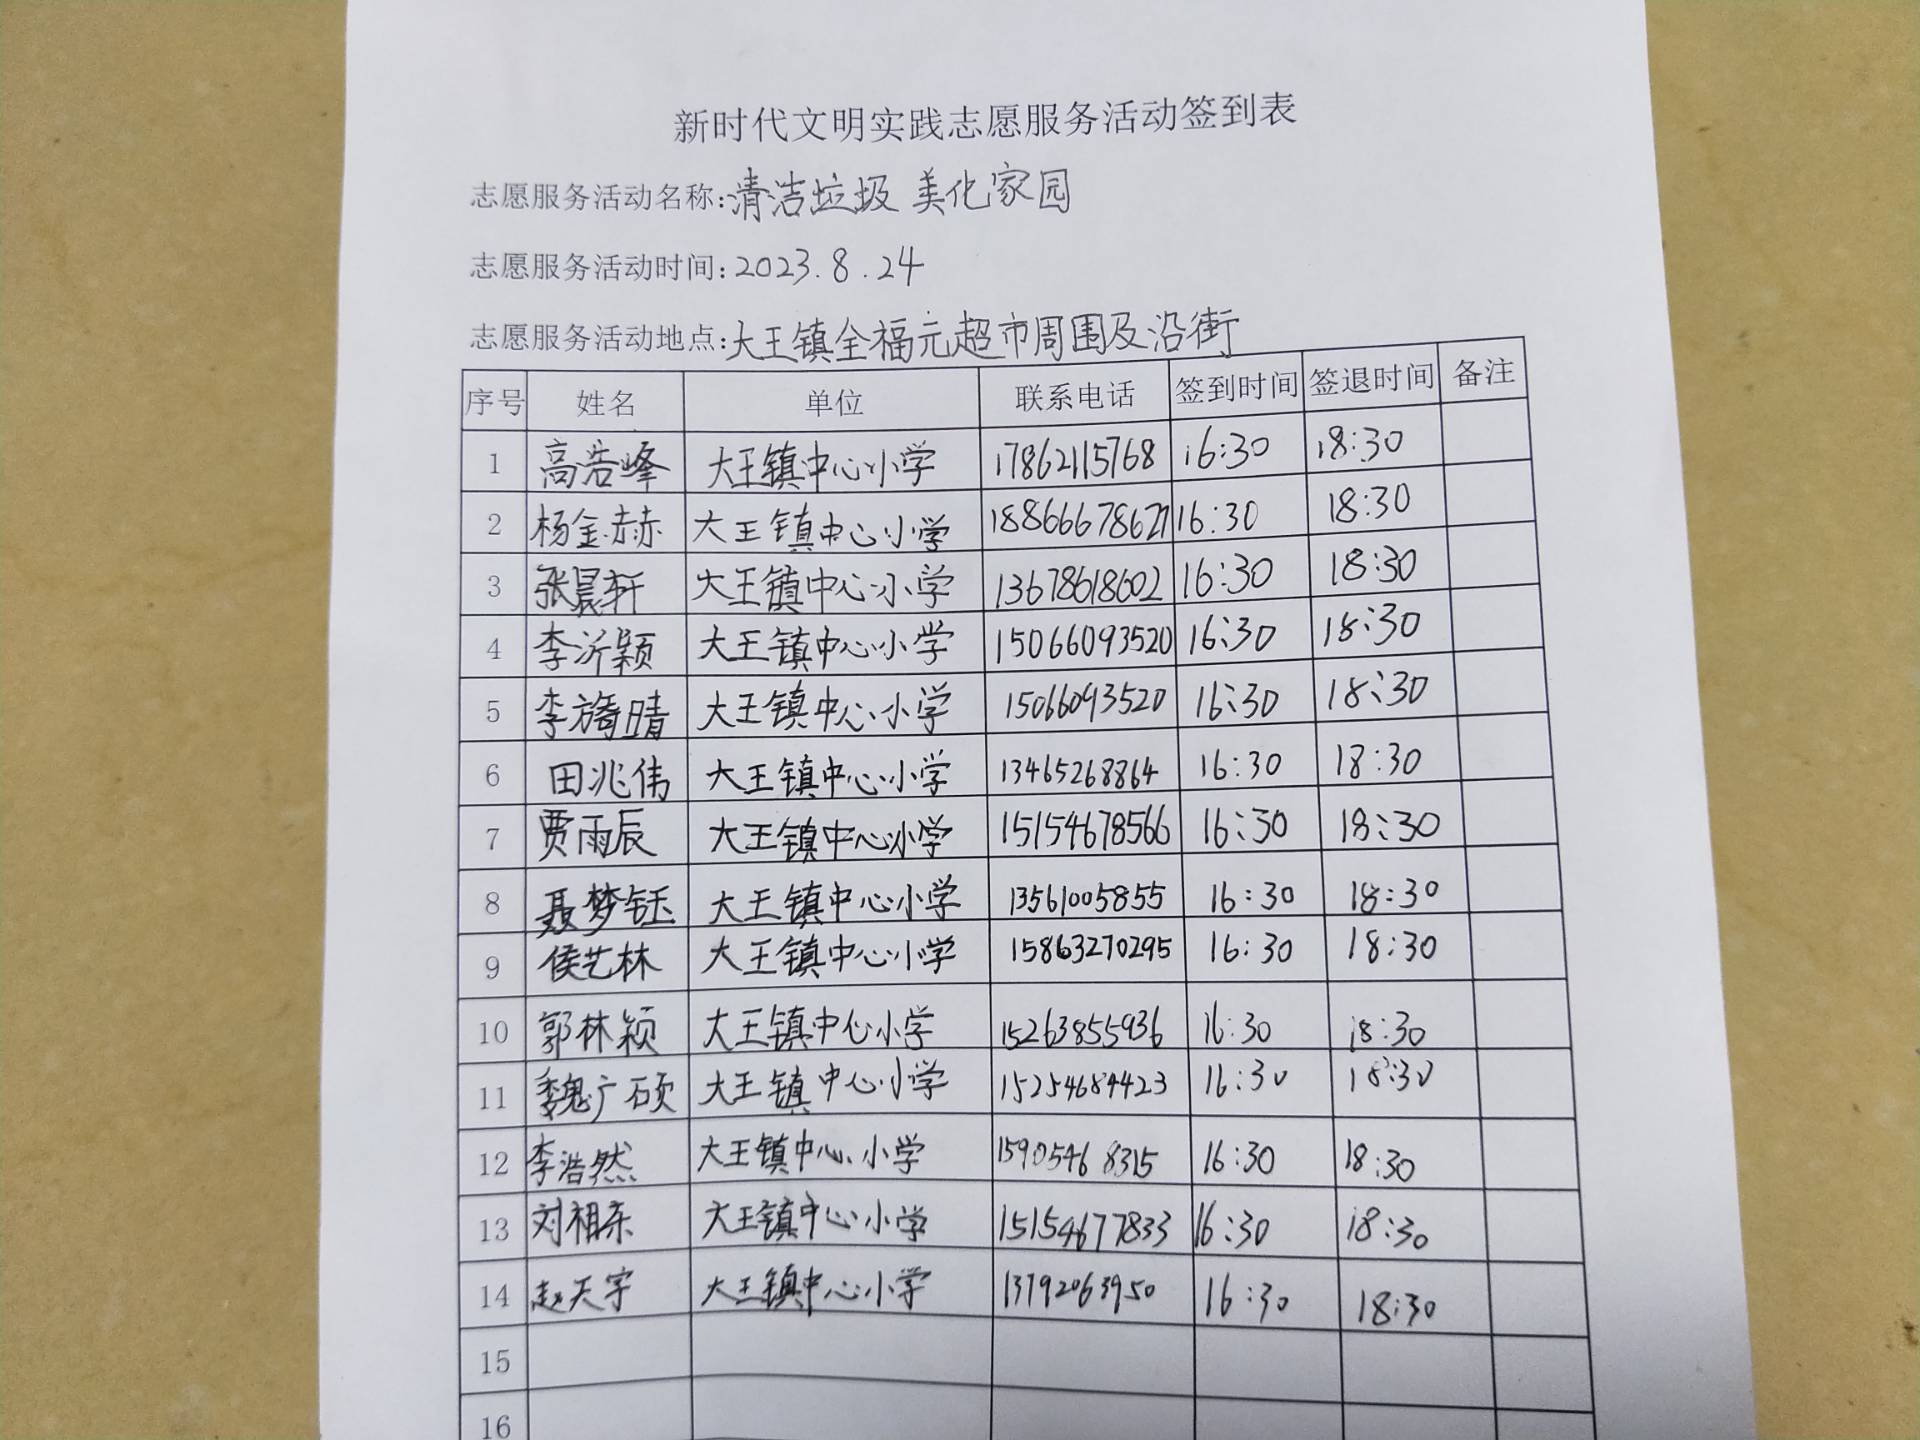 新时代文明实践志愿服务活动签到表
志愿服务活动名称:清洁垃圾 美化家园
志愿服务活动时间:2023.8.24
志愿服务活动地点:大王镇全福元超市周围及沿街
序号 姓名 单位 联系电话 签到时间 签退时间 备注
1 高浩峰 大王镇中心小学 17862115768 16:30 18:30
2 杨金赫 大王镇中心小学 18866678627 16:30 18:30
3 张晨轩 大王镇中心小学 13678618602 16:30 18:30
4 李沂颖 大王镇中心小学 15066093520 16:30 18:30
5 李旖晴 大王镇中心小学 15066093520 16:30 18:30
6 田兆伟 大王镇中心小学 13465268864 16:30 18:30
7 贾雨辰 大王镇中心小学 15154678566 16:30 18:30
8 聂梦钰 大王镇中心小学 13561005855 16:30 18:30
9 侯艺林 大王镇中心小学 15863270295 16:30 18:30
10 郭林颖 大王镇中心小学 15263855936 16:30 18:30
11 魏广硕 大王镇中心小学 15254684423 16:30 18:30
12 李浩然 大王镇中心小学 15905468315 16:30 18:30
13 刘相东 大王镇中心小学 15154677833 16:30 18:30
14 赵天宇 大王镇中心小学 13792063950 16:30 18:30
15
16